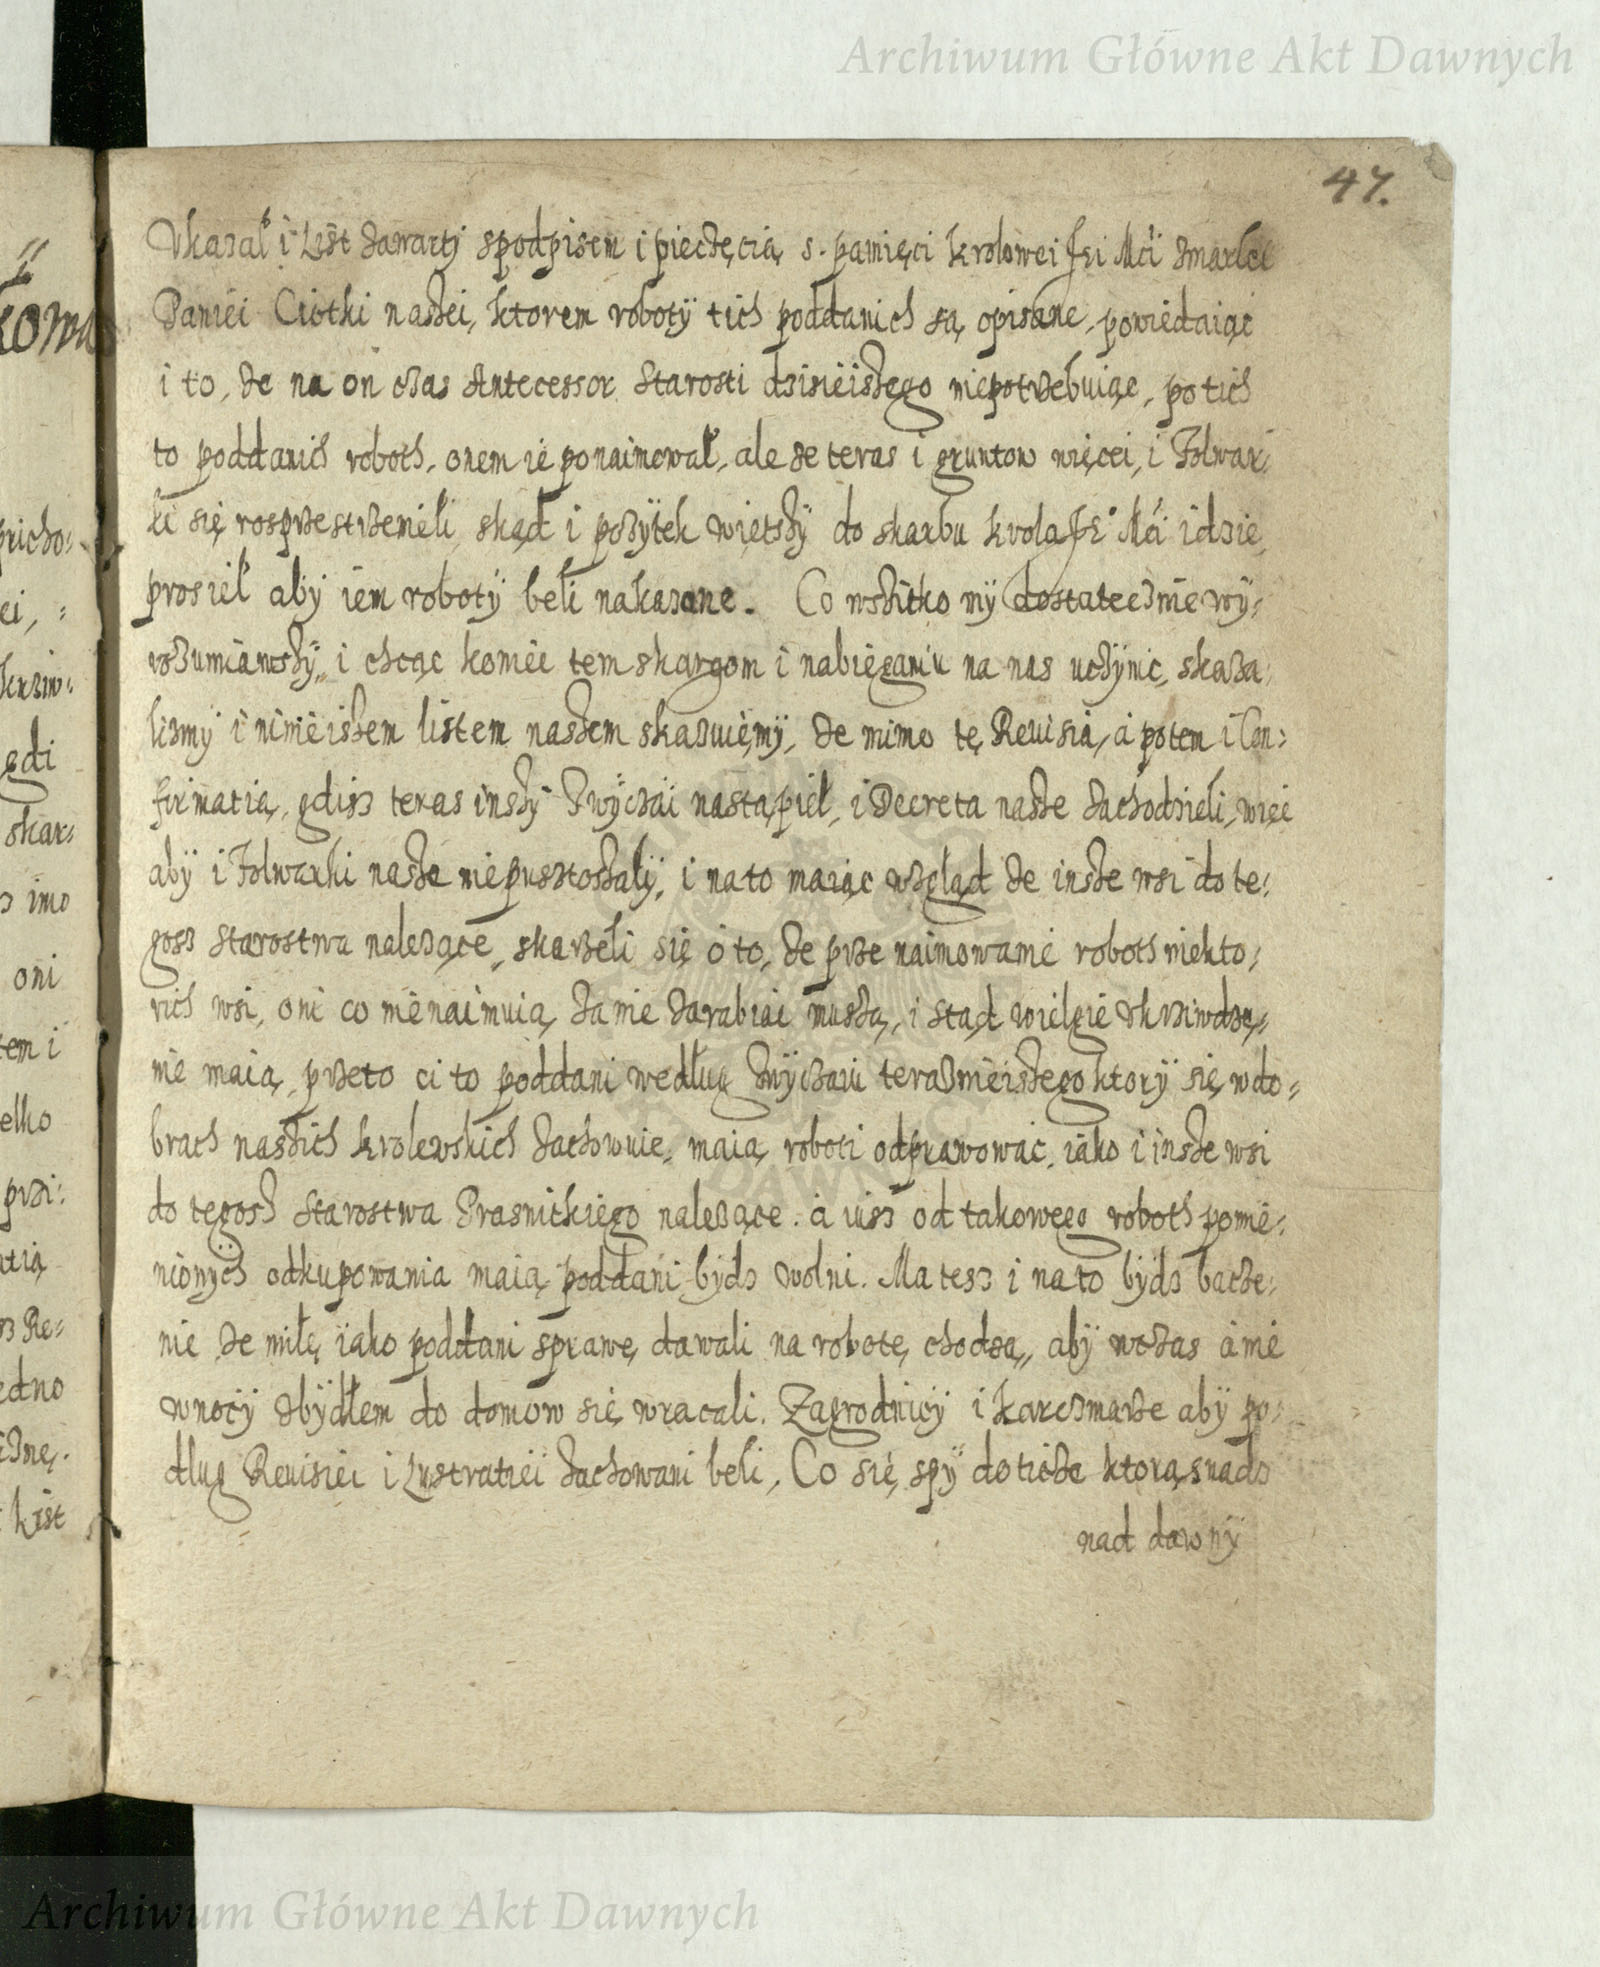 Archiwum Główne Akt Dawnych
47.
Ukazał i List zawarty spodpisem i pieczęcią s. pamięci Krolowei Jei Mci zmarłei
Paniei Ciotki naszei, ktorem roboty tich poddanich są opisane, powiedaiąc
i to, że na on czas Antecessor Starosti dzisieiszego niepotrzebuiąc, po tich
to poddanich roboth, onem ie ponaimował, ale że teras i gruntow więcei, i Folwar-
ki się rosprzestrzenieli, skąd i pożytek więtszy do skarbu krola Je° Mci idzie,
prosieł aby iem roboty beli nakazane. Co wszitko my dostatecznie wy-
rozumiawszy, i chcąc koniec tem skargom i nabieganiu na nas uczynic, skaza-
lismy i ninieiszem listem naszem skazuięmy, że mimo tę Reuisią, a potem i Con-
firmatią, gdisz teras inszy zwyczai nastąpieł, i Decreta nasze zachodzieli, więc
aby i Folwarki nasze niepustoszały, i na to maiąc wzgląd że insze wsi do te-
gosz Starostwa należące, skarzeli się o to, że prze naimowanie roboth niekto-
rich wsi, oni co nienaimuią, za nie zarabiac muszą, i stąd wielgie ukrziwdze-
nie maią, przeto ci to poddani według zwyczaiu teraznieiszego ktory się w do-
brach naszich krolewskich zachowuie, maią roboti odprawowac, iako i insze wsi
do tegosz Starostwa Prasnitkiego należące. a iusz od takowego roboth pomie-
nionych odkupowania maią poddani bydz wolni. Ma tesz i na to bydz bacze-
nie że milę iako poddani sprawę dawali na robotę chodzą, aby wczas a nie
w nocy zbydłem do domow się wracali. Zagrodnicy i karczmarze aby po-
dlug Reuisiei i Lustratiei zachowani beli, Co się spy doticze ktorą snadz
nad dawny
Archiwum Główne Akt Dawnych